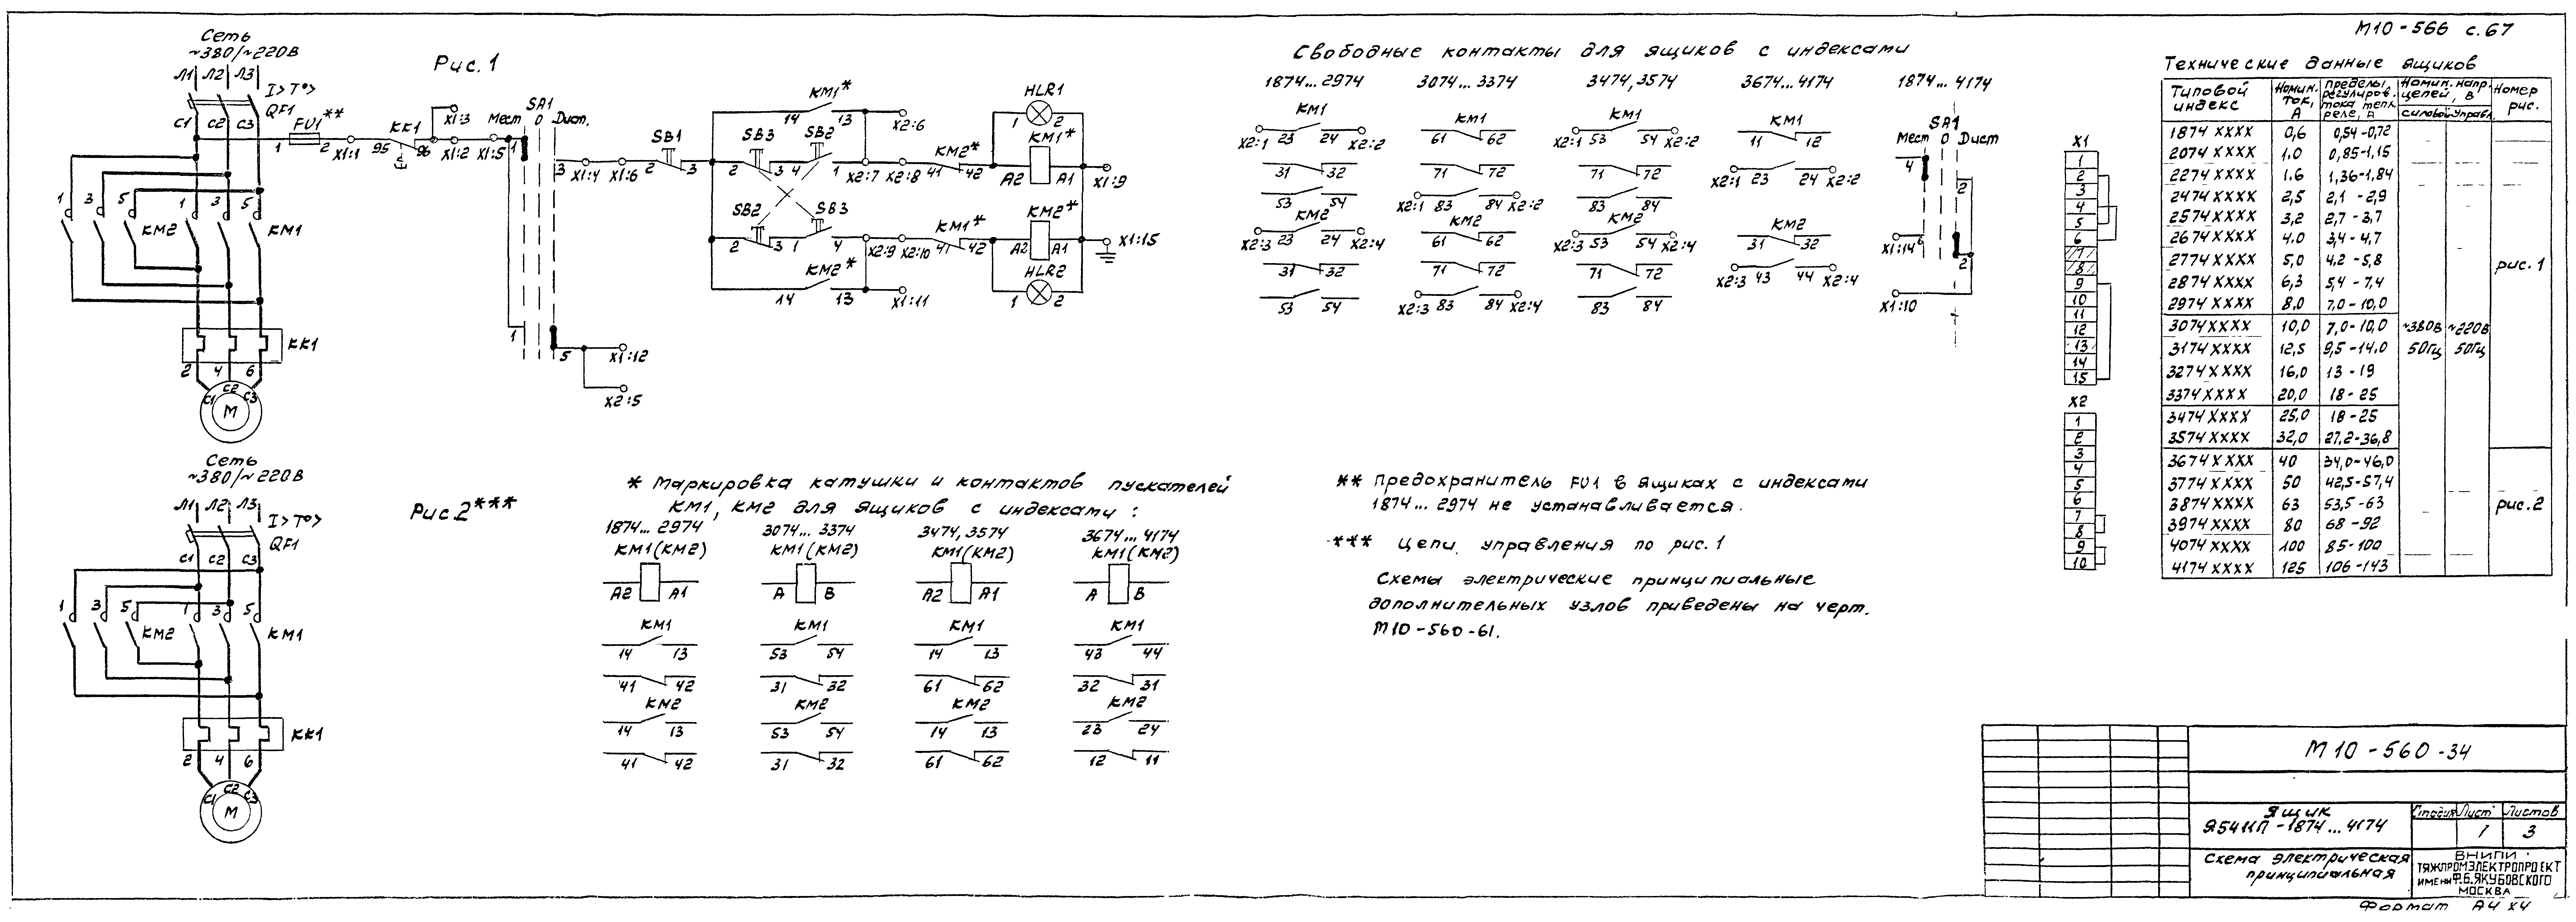 М10-566 с.67
Сеть
~380/~220В
Л1 Л2 Л3
I> T°>
QF1
С1 С2 С3
Рис.1
FU1**
1 2 X1:1
КК1
95 96 X1:2 X1:5
X1:3
SA1
Мест 0 Дист.
1
3 X1:4 X1:6
SB1
2 3
КМ1*
14 13
X2:6
SB3 SB2
2 3 4 1 X2:7 X2:8 41 42
КМ2*
HLR1
1 2
КМ1*
А2 А1
X1:9
SB2 SB3
2 3 1 4 X2:9 X2:10 41 42
КМ1*
КМ2*
А2 А1
X1:15
HLR2
1 2
КМ2*
14 13
X1:11
1
5 X1:12
X2:5
1 3 5 1 3 5
КМ2 КМ1
КК1
2 4 6
С1 С2 С3
М
Сеть
~380/~220В
Л1 Л2 Л3
I> T°>
QF1
С1 С2 С3
Рис.2***
1 3 5 1 3 5
КМ2 КМ1
КК1
2 4 6
С1 С2 С3
М
* Маркировка катушки и контактов пускателей
КМ1, КМ2 для ящиков с индексами:
1874... 2974 3074... 3374 3474, 3574 3674... 4174
КМ1(КМ2) КМ1(КМ2) КМ1(КМ2) КМ1(КМ2)
А2 А1 А В А2 А1 А В
КМ1 КМ1 КМ1 КМ1
14 13 53 54 14 13 43 44
41 42 31 32 61 62 32 31
КМ2 КМ2 КМ2 КМ2
14 13 53 54 14 13 23 24
41 42 31 32 61 62 12 11
Свободные контакты для ящиков с индексами
1874... 2974 3074... 3374 3474, 3574 3674... 4174 1874... 4174
КМ1 КМ1 КМ1 КМ1
X2:1 23 24 X2:2 61 62 X2:1 53 54 X2:2 11 12
31 32 71 72 71 72 X2:1 23 24 X2:2
53 54 X2:1 83 84 X2:2 83 84
КМ2 КМ2 КМ2 КМ2
X2:3 23 24 X2:4 61 62 X2:3 53 54 X2:4 31 32
31 32 71 72 71 72 X2:3 43 44 X2:4
53 54 X2:3 83 84 X2:4 83 84
SA1
Мест 0 Дист
4
2
X1:14 6
2
X1:10
** Предохранитель FU1 в ящиках с индексами
1874... 2974 не устанавливается.
*** Цепи управления по рис. 1
Схемы электрические принципиальные
дополнительных узлов приведены на черт.
М10-560-61.
X1
1
2
3
4
5
6
7
8
9
10
11
12
13
14
15
X2
1
2
3
4
5
6
7
8
9
10
Технические данные ящиков
Типовой индекс Номин. ток, А Пределы регулиров. тока тепл. реле, А Номин. напр. цепей, В силовой управл. Номер рис.
1874 ХХХХ 0,6 0,54-0,72
2074 ХХХХ 1.0 0,85-1,15
2274 ХХХХ 1.6 1,36-1,84
2474 ХХХХ 2,5 2,1 - 2,9
2574 ХХХХ 3,2 2,7 - 3,7
2674 ХХХХ 4.0 3,4 - 4,7
2774 ХХХХ 5,0 4,2 - 5,8 рис. 1
2874 ХХХХ 6,3 5,4 - 7,4
2974 ХХХХ 8.0 7,0 - 10,0
3074 ХХХХ 10,0 7,0-10,0 ~380В ~220В
3174 ХХХХ 12,5 9,5-14,0 50Гц 50Гц
3274 ХХХХ 16,0 13 - 19
3374 ХХХХ 20,0 18 - 25
3474 ХХХХ 25,0 18 - 25
3574 ХХХХ 32,0 27,2-36,8
3674 ХХХХ 40 34,0-46,0
3774 ХХХХ 50 42,5-57,4
3874 ХХХХ 63 53,5-63 рис.2
3974 ХХХХ 80 68-92
4074 ХХХХ 100 85-100
4174 ХХХХ 125 106-143
М10-560-34
Ящик
Я5411П-1874...4174
Стадия Лист Листов
1 3
Схема электрическая
принципиальная
ВНИПИ
ТЯЖПРОМЭЛЕКТРОПРОЕКТ
ИМЕНИ Ф.Б.ЯКУБОВСКОГО
МОСКВА
Формат А4х4